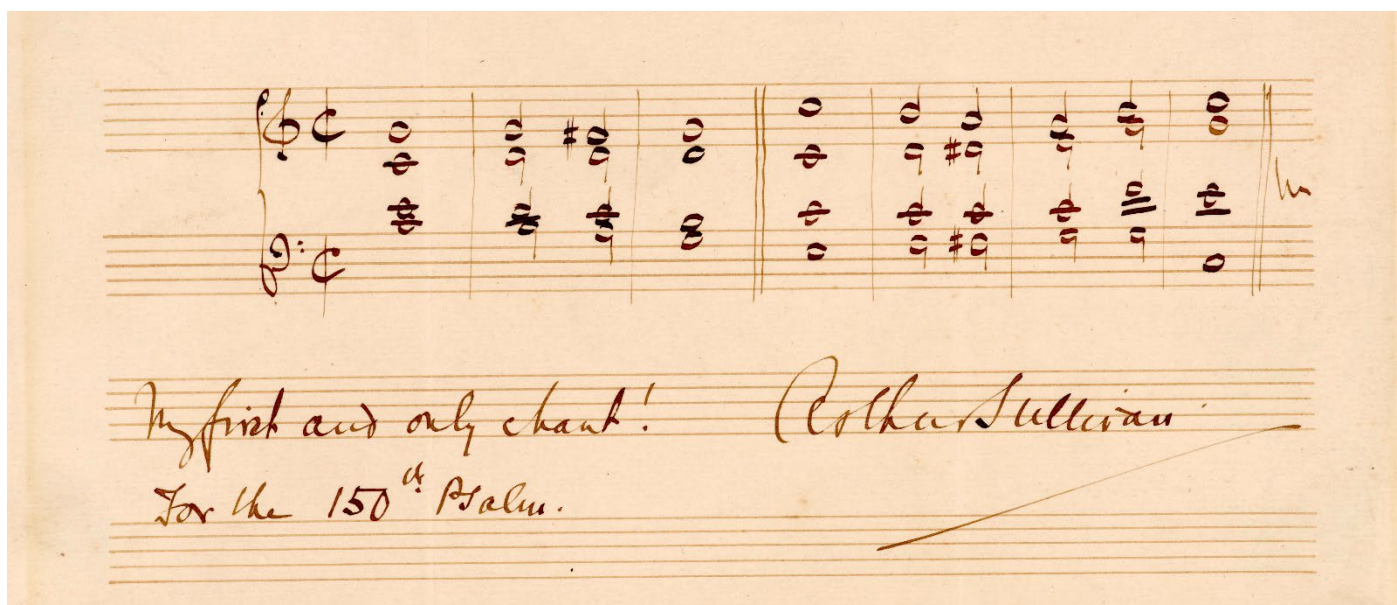 My first and only chant! Arthur Sullivan
For the 150th Psalm.